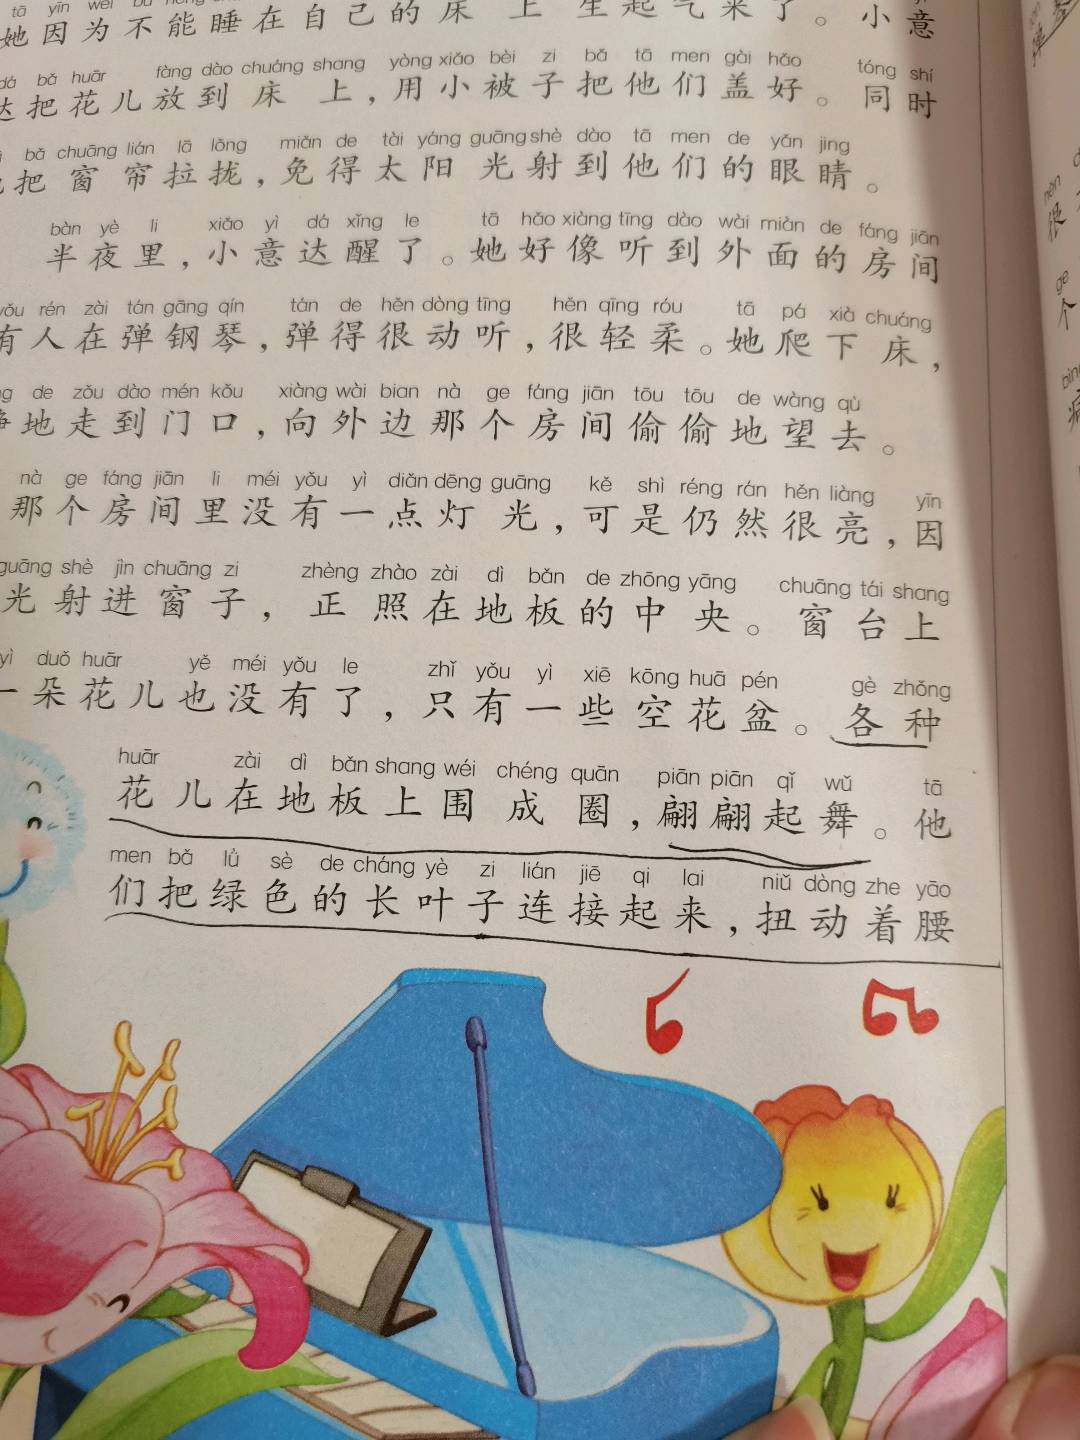 她因为不能睡在自己的床上生起气来了。小意
dá bǎ huār fàng dào chuáng shang yòng xiǎo bèi zi bǎ tā men gài hǎo tóng shí
达把花儿放到床上，用小被子把他们盖好。同时
bǎ chuāng lián lā lǒng miǎn de tài yáng guāng shè dào tā men de yǎn jing
把窗帘拉拢，免得太阳光射到他们的眼睛。
bàn yè li xiǎo yì dá xǐng le tā hǎo xiàng tīng dào wài miàn de fáng jiān
半夜里，小意达醒了。她好像听到外面的房间
yǒu rén zài tán gāng qín tán de hěn dòng tīng hěn qīng róu tā pá xià chuáng
有人在弹钢琴，弹得很动听，很轻柔。她爬下床，
de zǒu dào mén kǒu xiàng wài bian nà ge fáng jiān tōu tōu de wàng qù
地走到门口，向外边那个房间偷偷地望去。
nà ge fáng jiān li méi yǒu yì diǎn dēng guāng kě shì réng rán hěn liàng yīn
那个房间里没有一点灯光，可是仍然很亮，因
guāng shè jìn chuāng zi zhèng zhào zài dì bǎn de zhōng yāng chuāng tái shang
光射进窗子，正照在地板的中央。窗台上
yì duǒ huār yě méi yǒu le zhǐ yǒu yì xiē kōng huā pén gè zhǒng
一朵花儿也没有了，只有一些空花盆。各种
huār zài dì bǎn shang wéi chéng quān piān piān qǐ wǔ tā
花儿在地板上围成圈，翩翩起舞。他
men bǎ lǜ sè de cháng yè zi lián jiē qi lai niǔ dòng zhe yāo
们把绿色的长叶子连接起来，扭动着腰